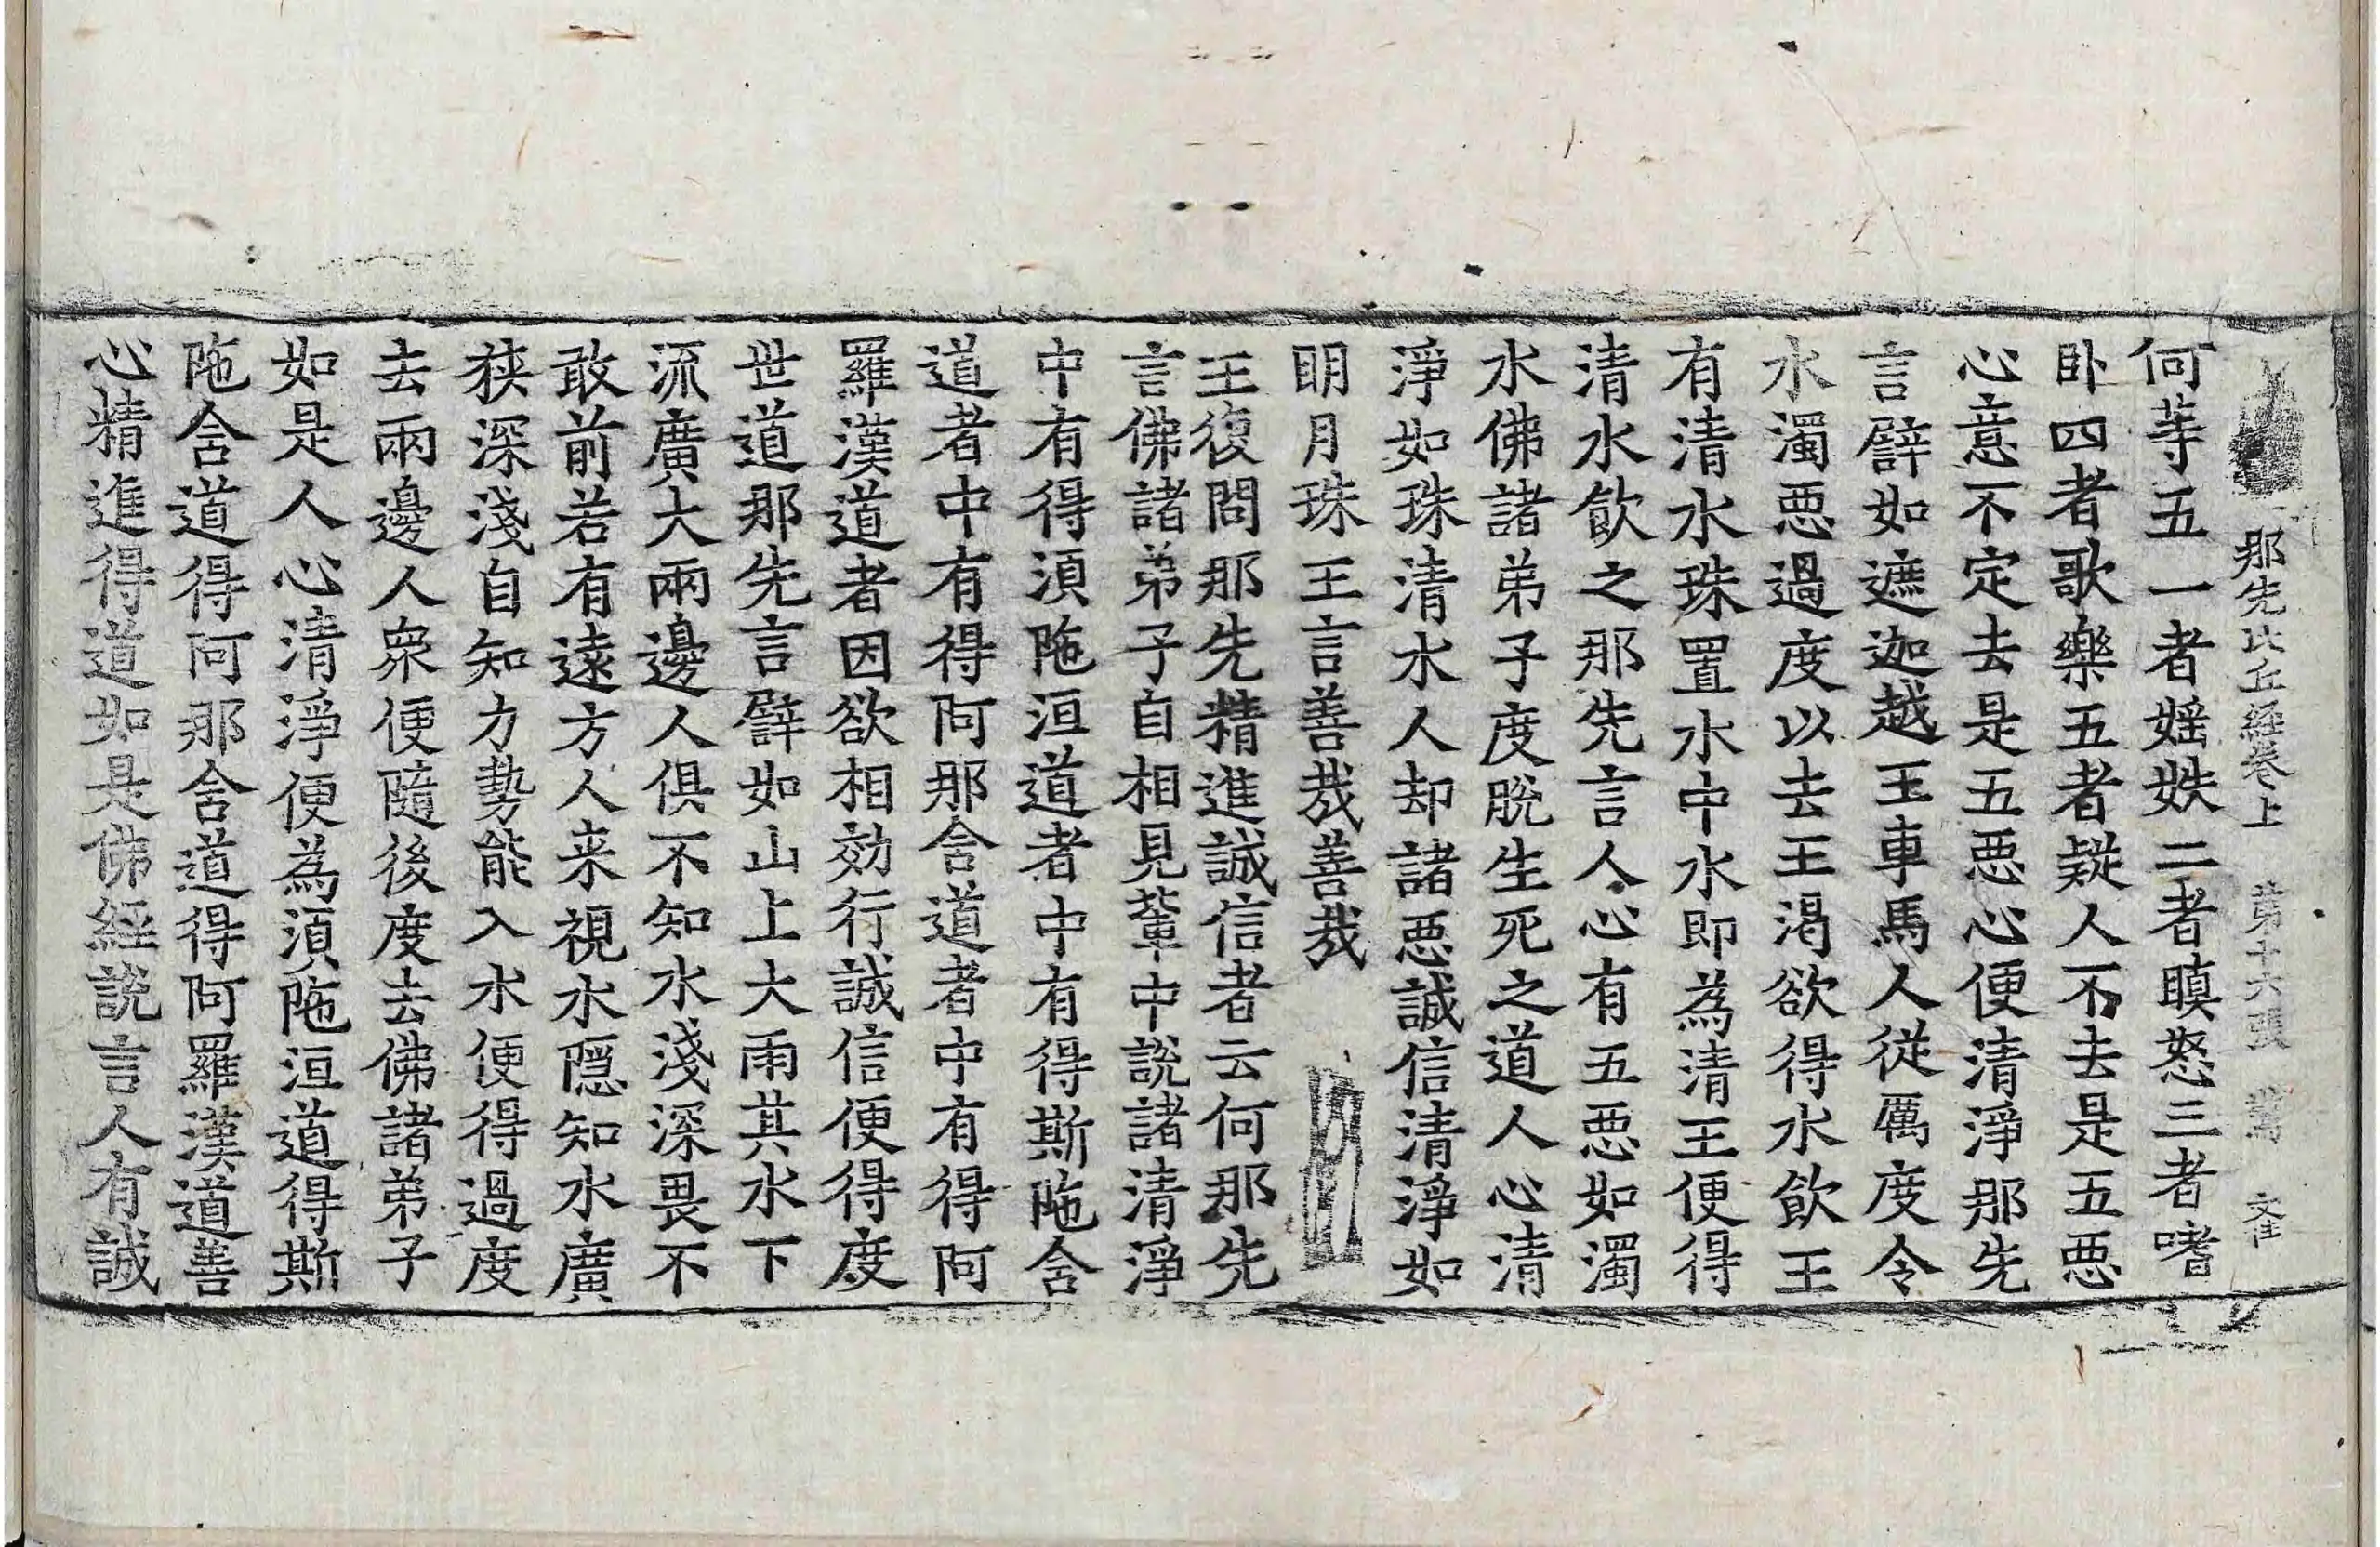 那先比丘經卷上 第十六張
何等五一者婬妷二者瞋怒三者嗜
卧四者歌樂五者疑人不去是五惡
心意不定去是五惡心便清淨那先
言譬如遮迦越王車馬人從厲度令
水濁惡過度以去王渴欲得水飲王
有清水珠置水中水即為清王便得
清水飲之那先言人心有五惡如濁
水佛諸弟子度脫生死之道人心清
淨如珠清水人却諸惡誠信清淨如
明月珠王言善哉善哉
王復問那先精進誠信者云何那先
言佛諸弟子自相見輩中說諸清淨
中有得須陁洹道者中有得斯陁含
道者中有得阿那含道者中有得阿
羅漢道者因欲相効行誠信便得度
世道那先言譬如山上大雨其水下
流廣大兩邊人俱不知水淺深畏不
敢前若有遠方人来視水隱知水廣
狹深淺自知力勢能入水便得過度
去兩邊人衆便隨後度去佛諸弟子
如是人心清淨便為須陁洹道得斯
陁含道得阿那含道得阿羅漢道善
心精進得道如是佛經說言人有誠